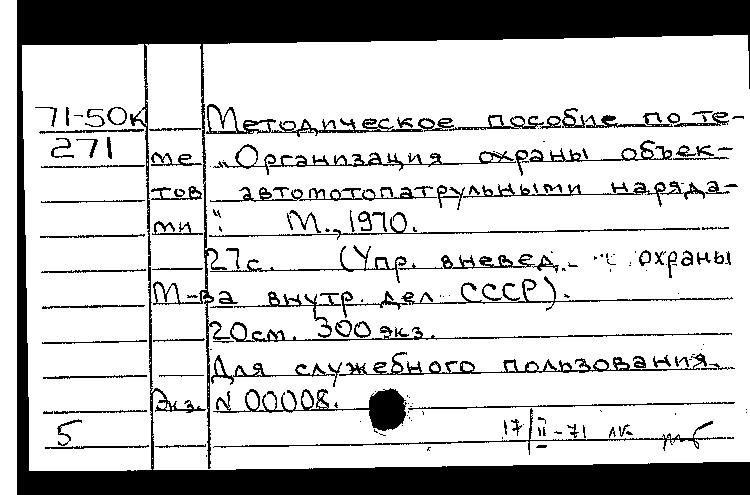 71-50к Методическое пособие по те-
271 ме „Организация охраны объек-
тов автомотопатрульными наряда-
ми“. М., 1970.
27с. (Упр. вневед. охраны
М-ва внутр. дел СССР).
20см. 300 экз.
Для служебного пользования.
Экз. N 00008.
5 17/II-71